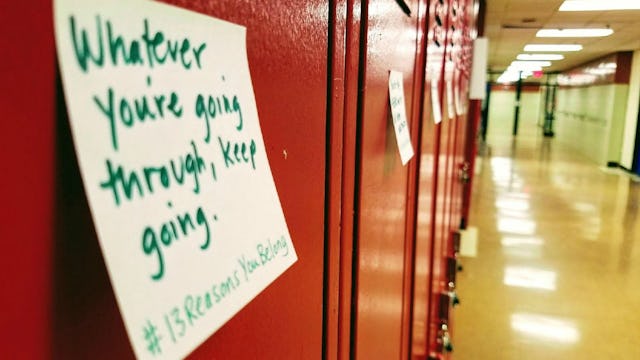 Whatever
you're going
through, keep
going.
#13ReasonsYouBelong